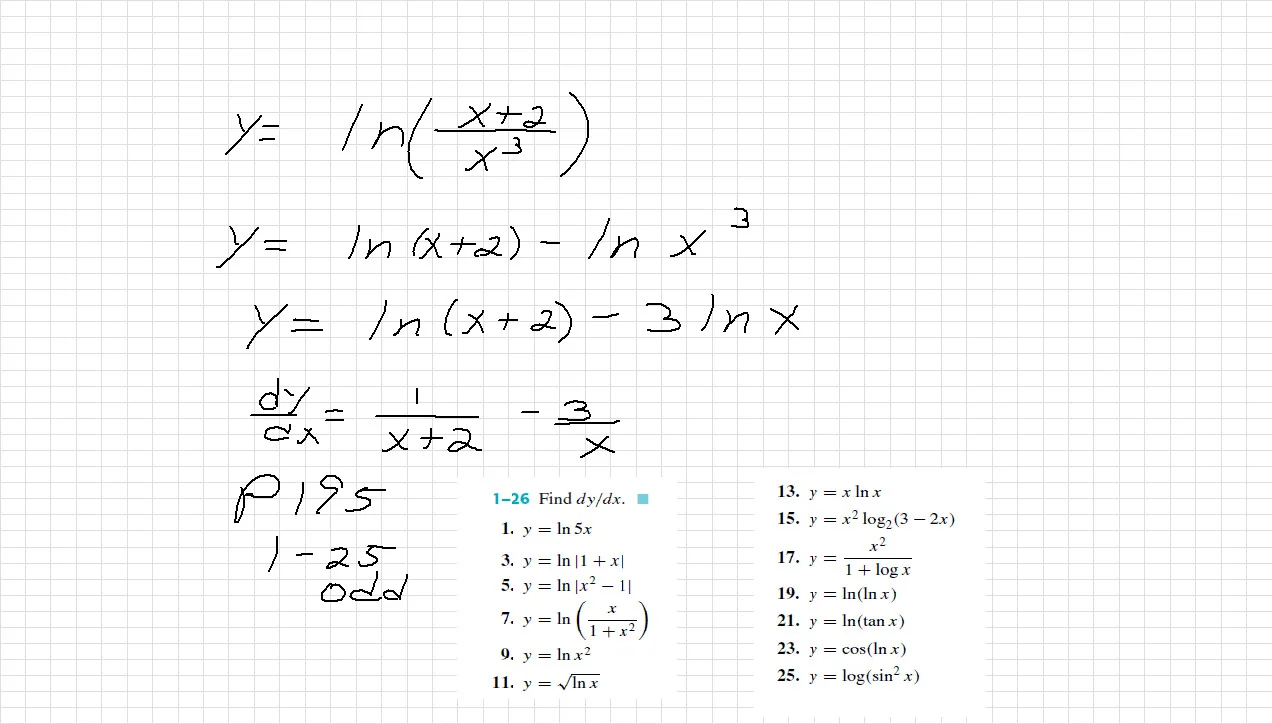 y = ln((x+2)/x³)
y = ln(x+2) - ln x³
y = ln(x+2) - 3 ln x
dy/dx = 1/(x+2) - 3/x
P195
1-25
odd
1–26 Find dy/dx.
1. y = ln 5x
3. y = ln |1 + x|
5. y = ln |x² − 1|
7. y = ln (x/(1 + x²))
9. y = ln x²
11. y = √(ln x)
13. y = x ln x
15. y = x² log₂(3 − 2x)
17. y = x²/(1 + log x)
19. y = ln(ln x)
21. y = ln(tan x)
23. y = cos(ln x)
25. y = log(sin² x)